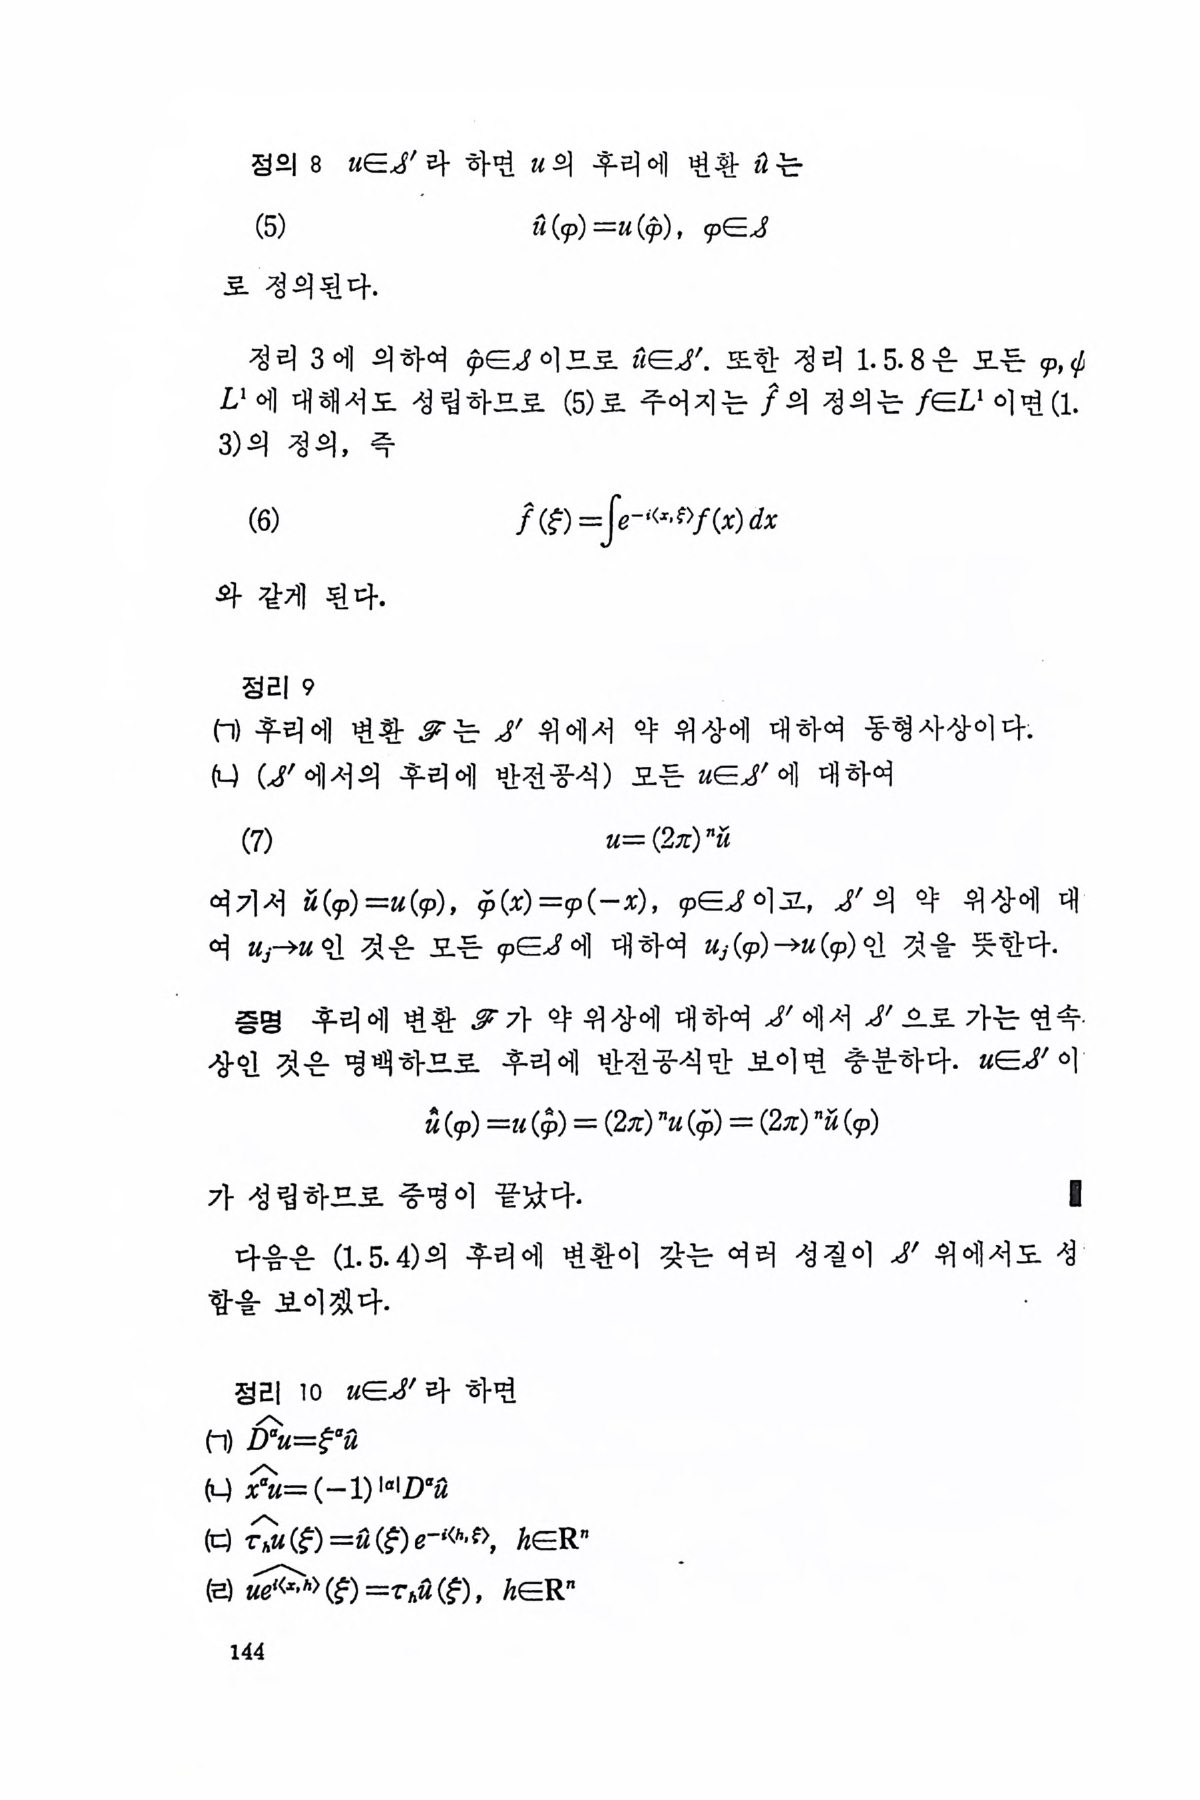 정의 8 u∈𝒮′라 하면 u의 후리에 변환 û는
(5) û(φ)=u(φ̂), φ∈𝒮
로 정의된다.
정리 3에 의하여 φ̂∈𝒮이므로 û∈𝒮′. 또한 정리 1.5.8은 모든 φ, ψ
L¹에 대해서도 성립하므로 (5)로 주어지는 f̂의 정의는 f∈L¹이면 (1.
3)의 정의, 즉
(6) f̂(ξ)=∫e^{-i⟨x,ξ⟩}f(x)dx
와 같게 된다.
정리 9
(ㄱ) 후리에 변환 ℱ는 𝒮′ 위에서 약 위상에 대하여 동형사상이다.
(ㄴ) (𝒮′에서의 후리에 반전공식) 모든 u∈𝒮′에 대하여
(7) u=(2π)ⁿǔ
여기서 ǔ(φ)=u(φ), φ̌(x)=φ(−x), φ∈𝒮이고, 𝒮′의 약 위상에 대
여 u_j→u인 것은 모든 φ∈𝒮에 대하여 u_j(φ)→u(φ)인 것을 뜻한다.
증명 후리에 변환 ℱ가 약 위상에 대하여 𝒮′에서 𝒮′으로 가는 연속
상인 것은 명백하므로 후리에 반전공식만 보이면 충분하다. u∈𝒮′이
û̂(φ)=u(φ̂̂)=(2π)ⁿu(φ̌)=(2π)ⁿǔ(φ)
가 성립하므로 증명이 끝났다. ▮
다음은 (1.5.4)의 후리에 변환이 갖는 여러 성질이 𝒮′ 위에서도 성
함을 보이겠다.
정리 10 u∈𝒮′라 하면
(ㄱ) \widehat{D^αu}=ξ^αû
(ㄴ) \widehat{x^αu}=(−1)^{|α|}D^αû
(ㄷ) \widehat{τ_hu}(ξ)=û(ξ)e^{-i⟨h,ξ⟩}, h∈𝐑ⁿ
(ㄹ) \widehat{ue^{i⟨x,h⟩}}(ξ)=τ_hû(ξ), h∈𝐑ⁿ
144